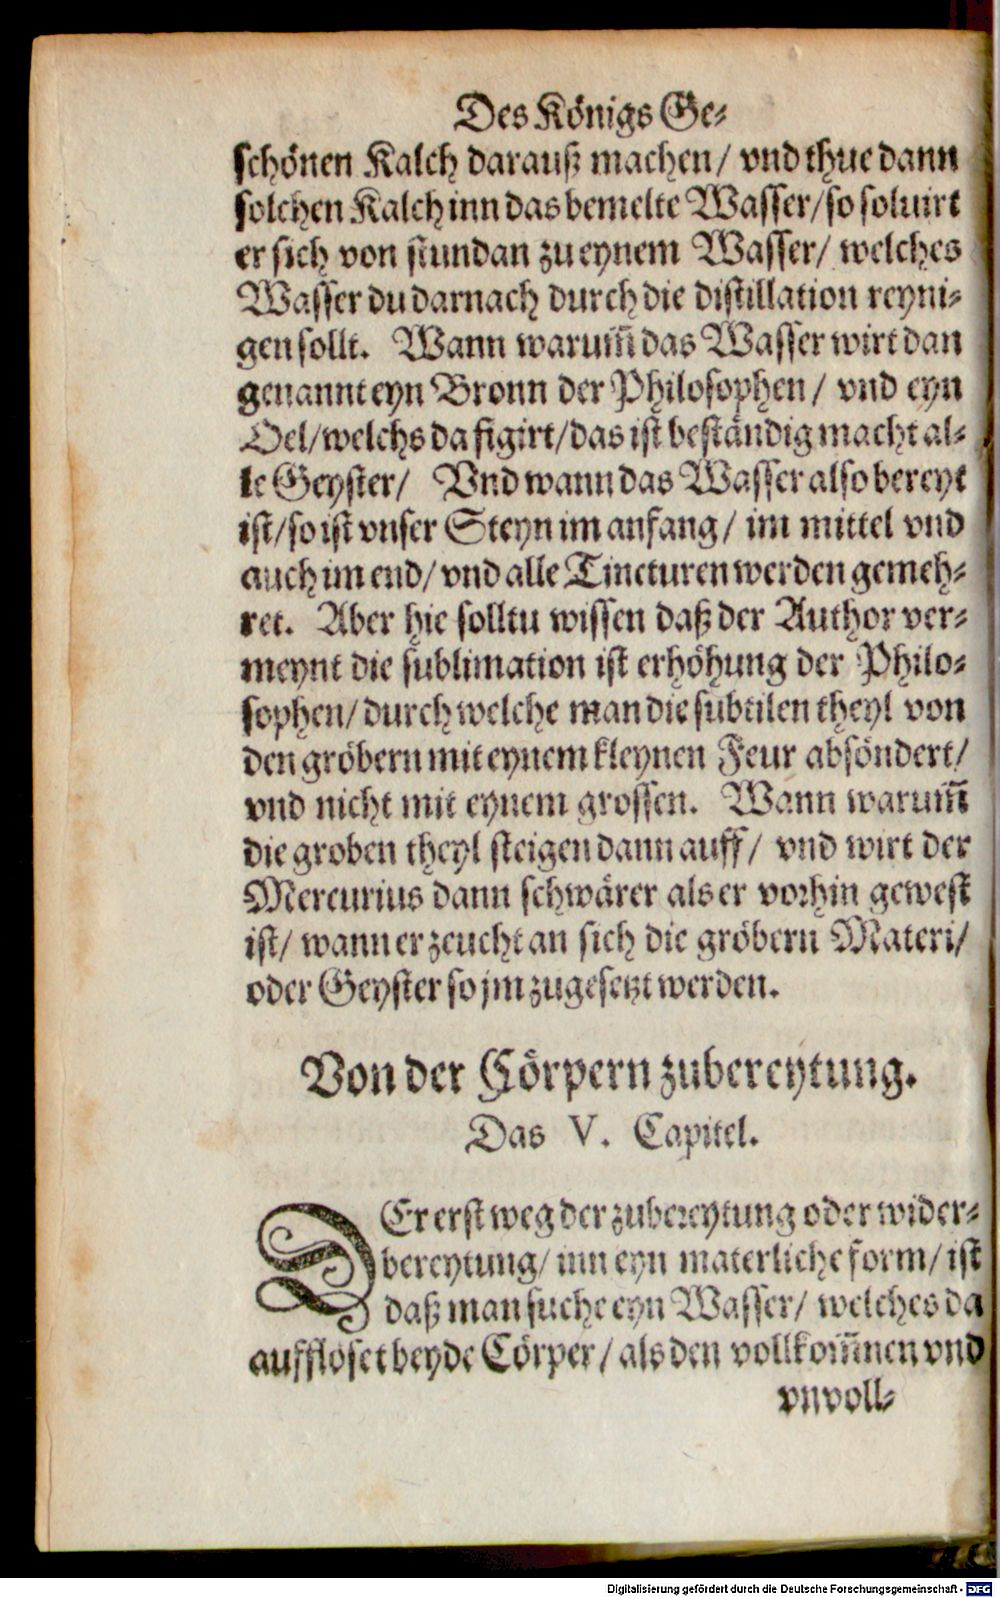 Des Königs Ge⸗
schönen Kalch darauß machen/ vnd thue dann
solchen Kalch inn das bemelte Wasser/ so soluirt
er sich von stundan zu eynem Wasser/ welches
Wasser du darnach durch die distillation reyni⸗
gen sollt. Wann warum̃ das Wasser wirt dan
genannt eyn Bronn der Philosophen/ vnd eyn
Oel/ welchs da figirt/ das ist beständig macht al⸗
le Geyster/ Vnd wann das Wasser also bereyt
ist/ so ist vnser Steyn im anfang/ im mittel vnd
auch im end/ vnd alle Tincturen werden gemeh⸗
ret. Aber hie solltu wissen daß der Author ver⸗
meynt die sublimation ist erhöhung der Philo⸗
sophen/ durch welche man die subtilen theyl von
den gröbern mit eynem kleynen Feur absöndert/
vnd nicht mit eynem grossen. Wann warum̃
die groben theyl steigen dann auff/ vnd wirt der
Mercurius dann schwärer als er vorhin gewest
ist/ wann er zeucht an sich die gröbern Materi/
oder Geyster so jm zugesetzt werden.
Von der Cörpern zubereytung.
Das V. Capitel.
DEr erst weg der zubereytung oder wider⸗
bereytung/ inn eyn materliche form/ ist
daß man suche eyn Wasser/ welches da
aufflöset beyde Cörper/ als den vollkom̃nen vnd
vnvoll⸗
Digitalisierung gefördert durch die Deutsche Forschungsgemeinschaft - DFG